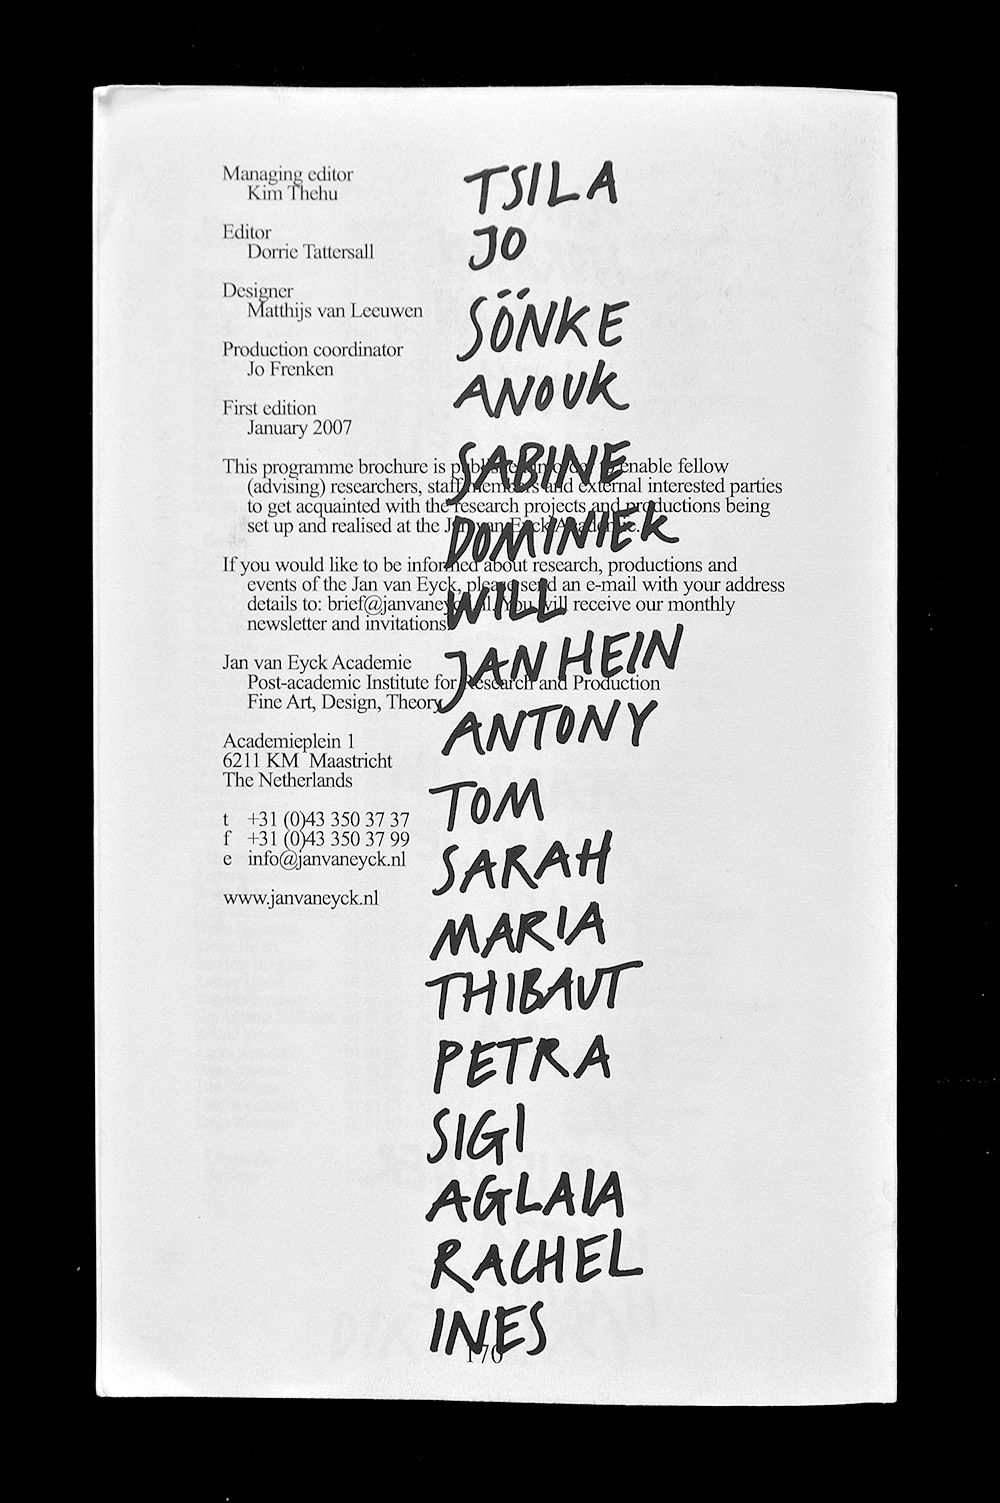 Managing editor
Kim Thehu
Editor
Dorrie Tattersall
Designer
Matthijs van Leeuwen
Production coordinator
Jo Frenken
First edition
January 2007
This programme brochure is published in order to enable fellow
(advising) researchers, staff members and external interested parties
to get acquainted with the research projects and productions being
set up and realised at the Jan van Eyck Academie.
If you would like to be informed about research, productions and
events of the Jan van Eyck, please send an e-mail with your address
details to: brief@janvaneyck.nl. You will receive our monthly
newsletter and invitations.
Jan van Eyck Academie
Post-academic Institute for Research and Production
Fine Art, Design, Theory
Academieplein 1
6211 KM Maastricht
The Netherlands
t +31 (0)43 350 37 37
f +31 (0)43 350 37 99
e info@janvaneyck.nl
www.janvaneyck.nl
TSILA
JO
SÖNKE
ANOUK
SABINE
DOMINIEK
WILL
JAN HEIN
ANTONY
TOM
SARAH
MARIA
THIBAUT
PETRA
SIGI
AGLAIA
RACHEL
INES
170